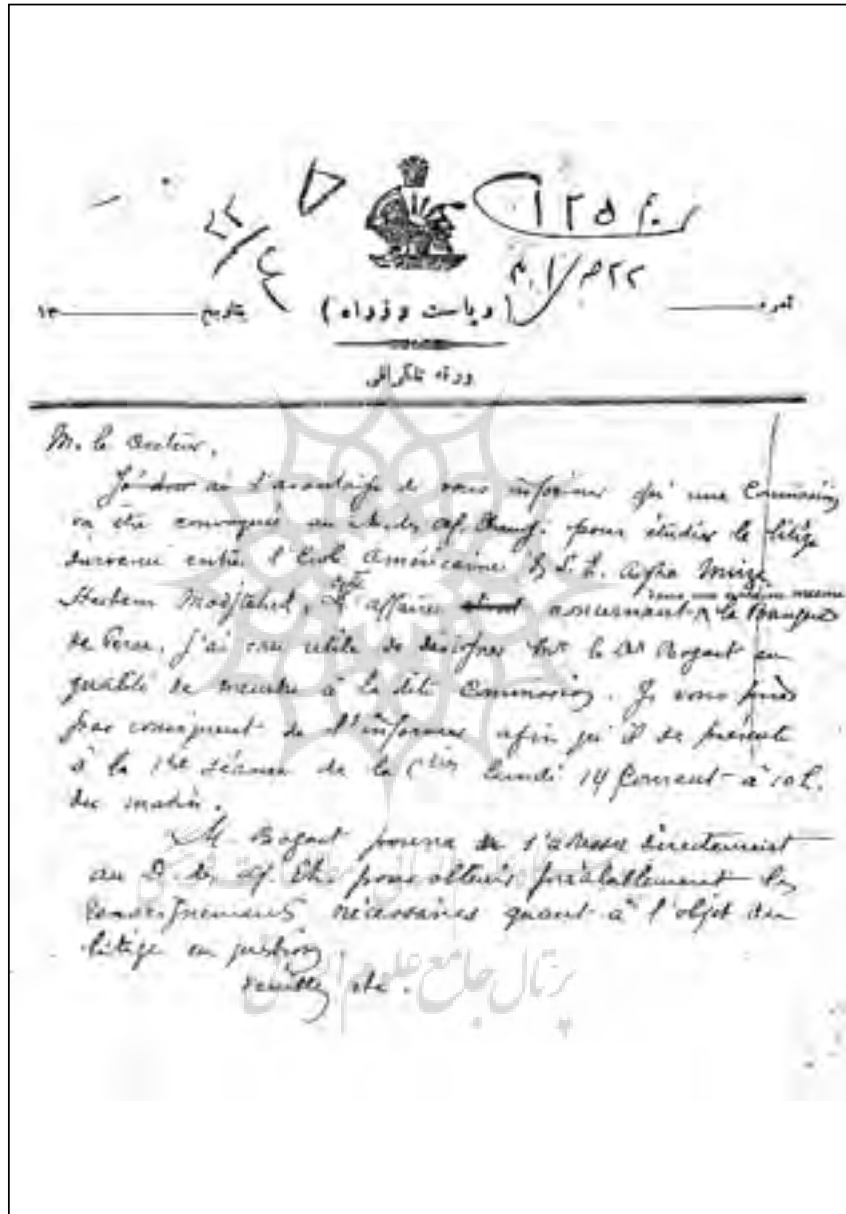 ۱۲۵
(ریاست وزراء)
نمره
بتاریخ
۱۳
ورقه تلگرافی
M. le
ai l'avantage de vous informer qu'une Commission
va être convoquée au Min. des Aff. Étrang. pour étudier le litige
survenu entre l'École Américaine & S. E. Agha Mirza
Hachem Modjtahed. Cette affaire concernant
dans une certaine mesure
la Banque
de Perse, j'ai cru utile de désigner Mr le Dr Bogart en
qualité de membre à la dite Commission. Je vous prie
par conséquent de l'informer afin qu'il se présente
à la 1re séance de la Cion lundi 14 Courant à 10 h.
du matin.
M. Bogart pourra s'adresser directement
au D. des Aff. Etr. pour obtenir préalablement les
renseignements nécessaires quant à l'objet du
litige en question.
Veuillez etc.
پرتال جامع علوم انسانی